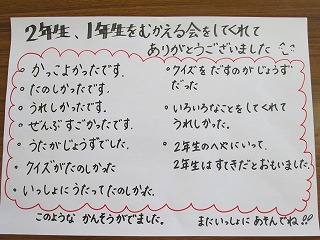 2年生、1年生をむかえる会をしてくれて
ありがとうございました
・かっこよかったです。
・たのしかったです。
・うれしかったです。
・ぜんぶすごかったです。
・うたがじょうずでした。
・クイズがたのしかった
・いっしょにうたってたのしかった。
・クイズをだすのがじょうず
だった
・いろいろなことをしてくれて
うれしかった。
・2年生のへやにいって、
2年生はすてきだとおもいました。
このような かんそうがでました。
またいっしょに あそんでね!!